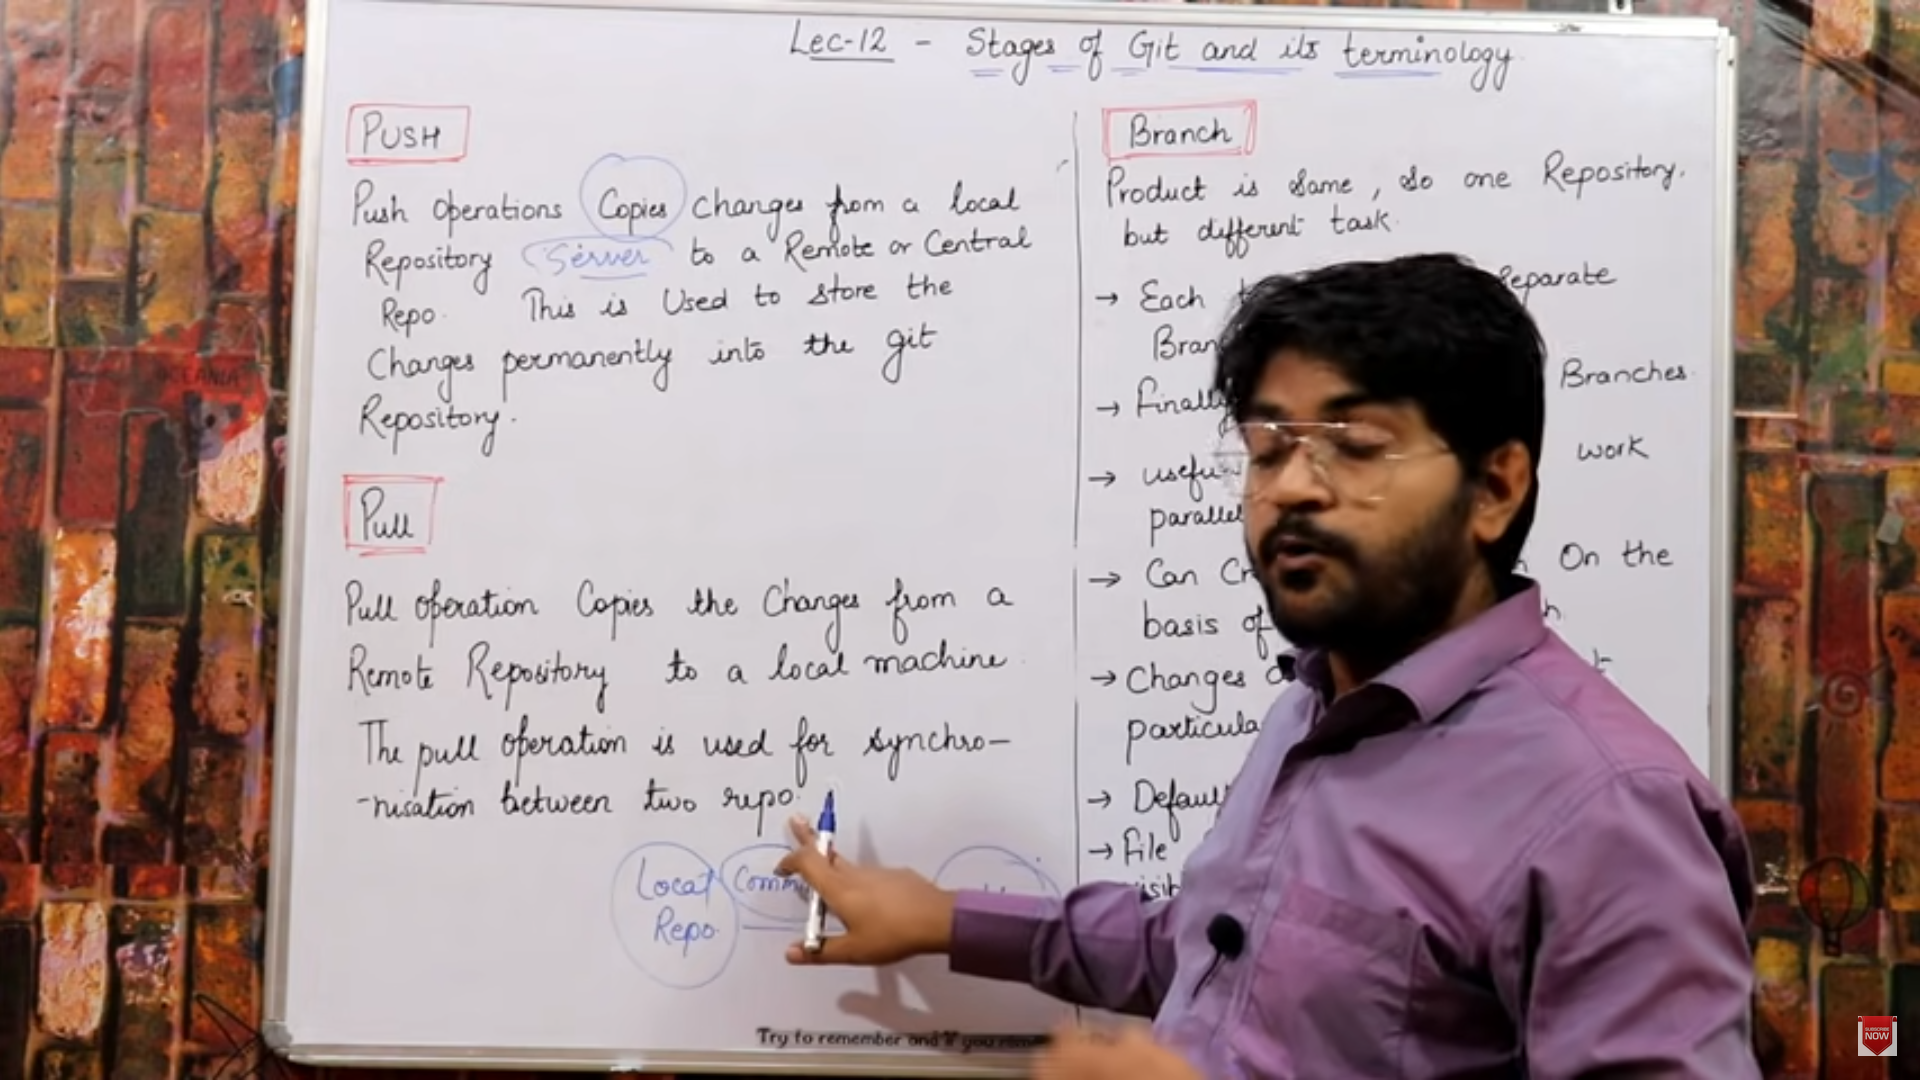 Lec-12 - Stages of Git and its terminology.
PUSH
Push operations Copies changes from a local
Repository Server to a Remote or Central
Repo. This is Used to store the
Changes permanently into the git
Repository.
Pull
Pull operation Copies the Changes from a
Remote Repository to a local machine.
The pull operation is used for synchro-
-nisation between two repo.
Local
Repo.
Branch
Product is same, so one Repository.
but different task.
→ Each Separate
→ Finally Branches.
→ work
parallel
→ Can On the
basis of
→ Changes
→
→ File
Try to remember and if you
SUBSCRIBE
NOW